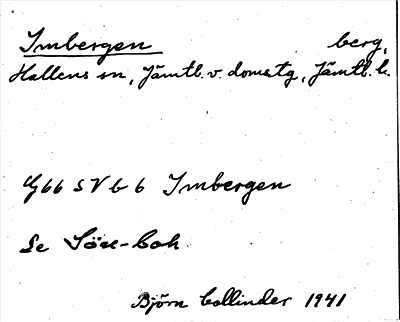 Imbergen berg,
Hallens sn, Jämtl. v. domstg, Jämtl. l.
G66 SV b 6 Imbergen
Se Söre-bok
Björn Collinder 1941